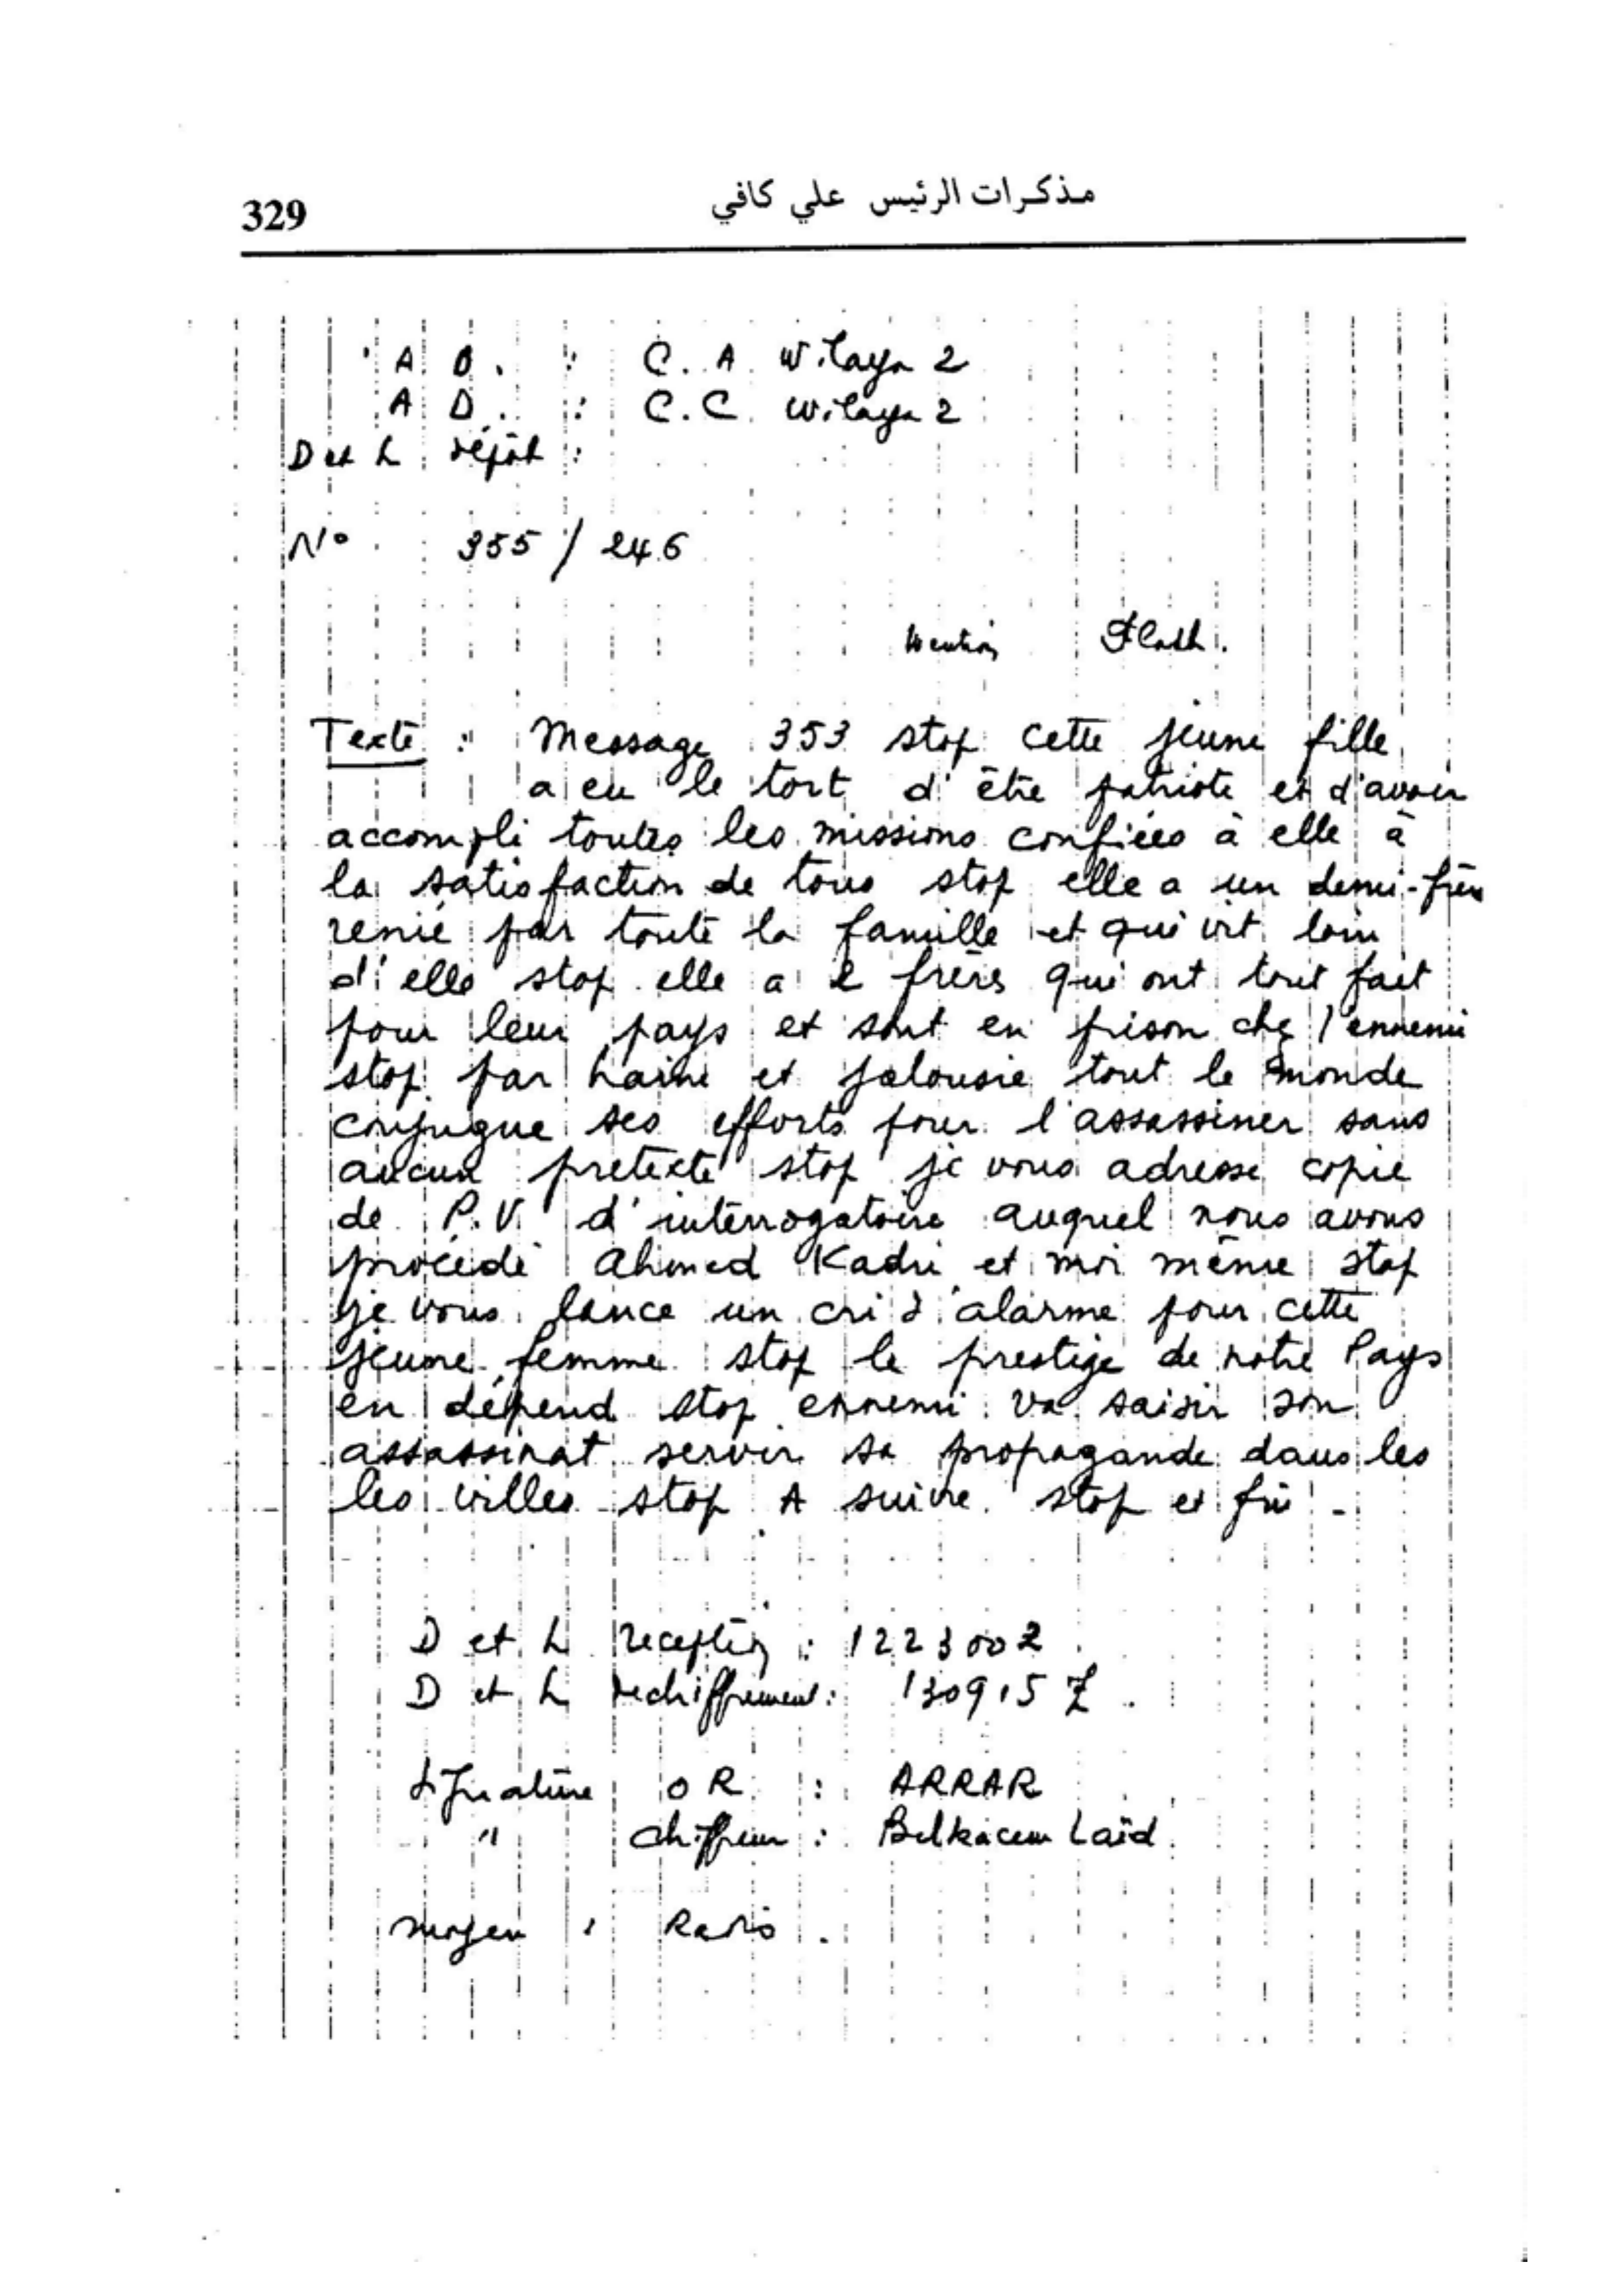 329
مذكرات الرئيس علي كافي
A O. : C. A. Wilaya 2
A D. : C.C. Wilaya 2
D et h dépôt :
N° 355 / 246
Mention Flash.
Texte : Message 353 stop cette jeune fille
a eu le tort d'être patriote et d'avoir
accompli toutes les missions confiées à elle à
la satisfaction de tous stop elle a un demi-frère
renié par toute la famille et qui vit loin
d'elle stop elle a 2 frères qui ont tout fait
pour leur pays et sont en prison chez l'ennemi
stop par haine et jalousie tout le monde
conjugue ses efforts pour l'assassiner sans
aucun pretexte stop je vous adresse copie
de P.V. d'interrogatoire auquel nous avons
procédé Ahmed Kadri et moi même stop
je vous lance un cri d'alarme pour cette
jeune femme stop le prestige de notre Pays
en dépend stop ennemi va saisir son
assassinat servir sa propagande dans les
les villes stop A suivre stop et fin -
D et h reception : 122300Z
D et h dechiffrement : 130915 Z.
Signature OR : ARRAR
" chiffreur : Belkacem Laïd
moyen : Radio.